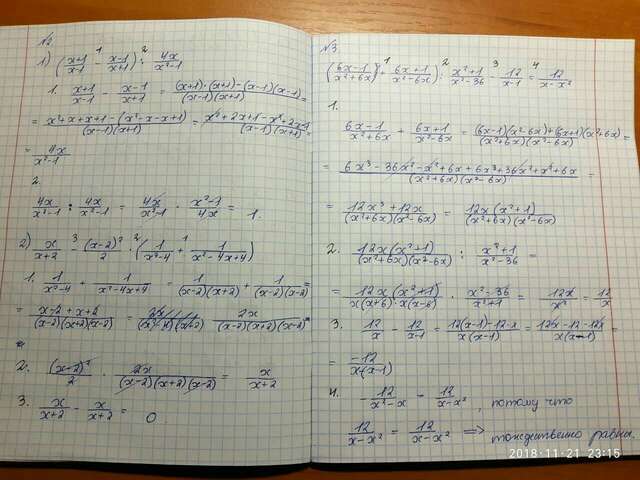 №2
1) (x+1/x-1 - x-1/x+1) : 4x/x²-1
1. x+1/x-1 - x-1/x+1 = (x+1)·(x+1)-(x-1)(x-1)/(x-1)(x+1) =
= x²+x+x+1-(x²-x-x+1)/(x-1)(x+1) = x²+2x+1-x²+2x-1/(x-1)(x+1) =
= 4x/x²-1
2.
4x/x²-1 : 4x/x²-1 = 4x/x²-1 · x²-1/4x = 1.
2) x/x+2 - (x-2)²/2 · (1/x²-4 + 1/x²-4x+4)
1. 1/x²-4 + 1/x²-4x+4 = 1/(x-2)(x+2) + 1/(x-2)(x-2) =
= x-2+x+2/(x-2)(x+2)(x-2) = 2x/(x-2)(x+2)(x-2) =
2. (x-2)²/2 · 2x/(x-2)(x+2)(x-2) = x/x+2
3. x/x+2 - x/x+2 = 0
№3
(6x-1/x²+6x + 6x+1/x²-6x) : x²+1/x²-36 - 12/x-1 = 12/x-x²
1.
6x-1/x²+6x + 6x+1/x²-6x = (6x-1)(x²-6x)+(6x+1)(x²+6x)/(x²+6x)(x²-6x) =
= 6x³-36x²-x²+6x+6x³+36x²+x²+6x/(x²+6x)(x²-6x) =
= 12x³+12x/(x²+6x)(x²-6x) = 12x(x²+1)/(x²+6x)(x²-6x)
2. 12x(x²+1)/(x²+6x)(x²-6x) : x²+1/x²-36 =
= 12x(x²+1)/x(x+6)·x(x-6) · x²-36/x²+1 = 12x/x² = 12/x
3. 12/x - 12/x-1 = 12(x-1)-12·x/x(x-1) = 12x-12-12x/x(x-1) =
= -12/x(x-1)
4. -12/x²-x = 12/x-x², потому что
12/x-x² = 12/x-x² => тождественно равны.
2018-11-21 23:15